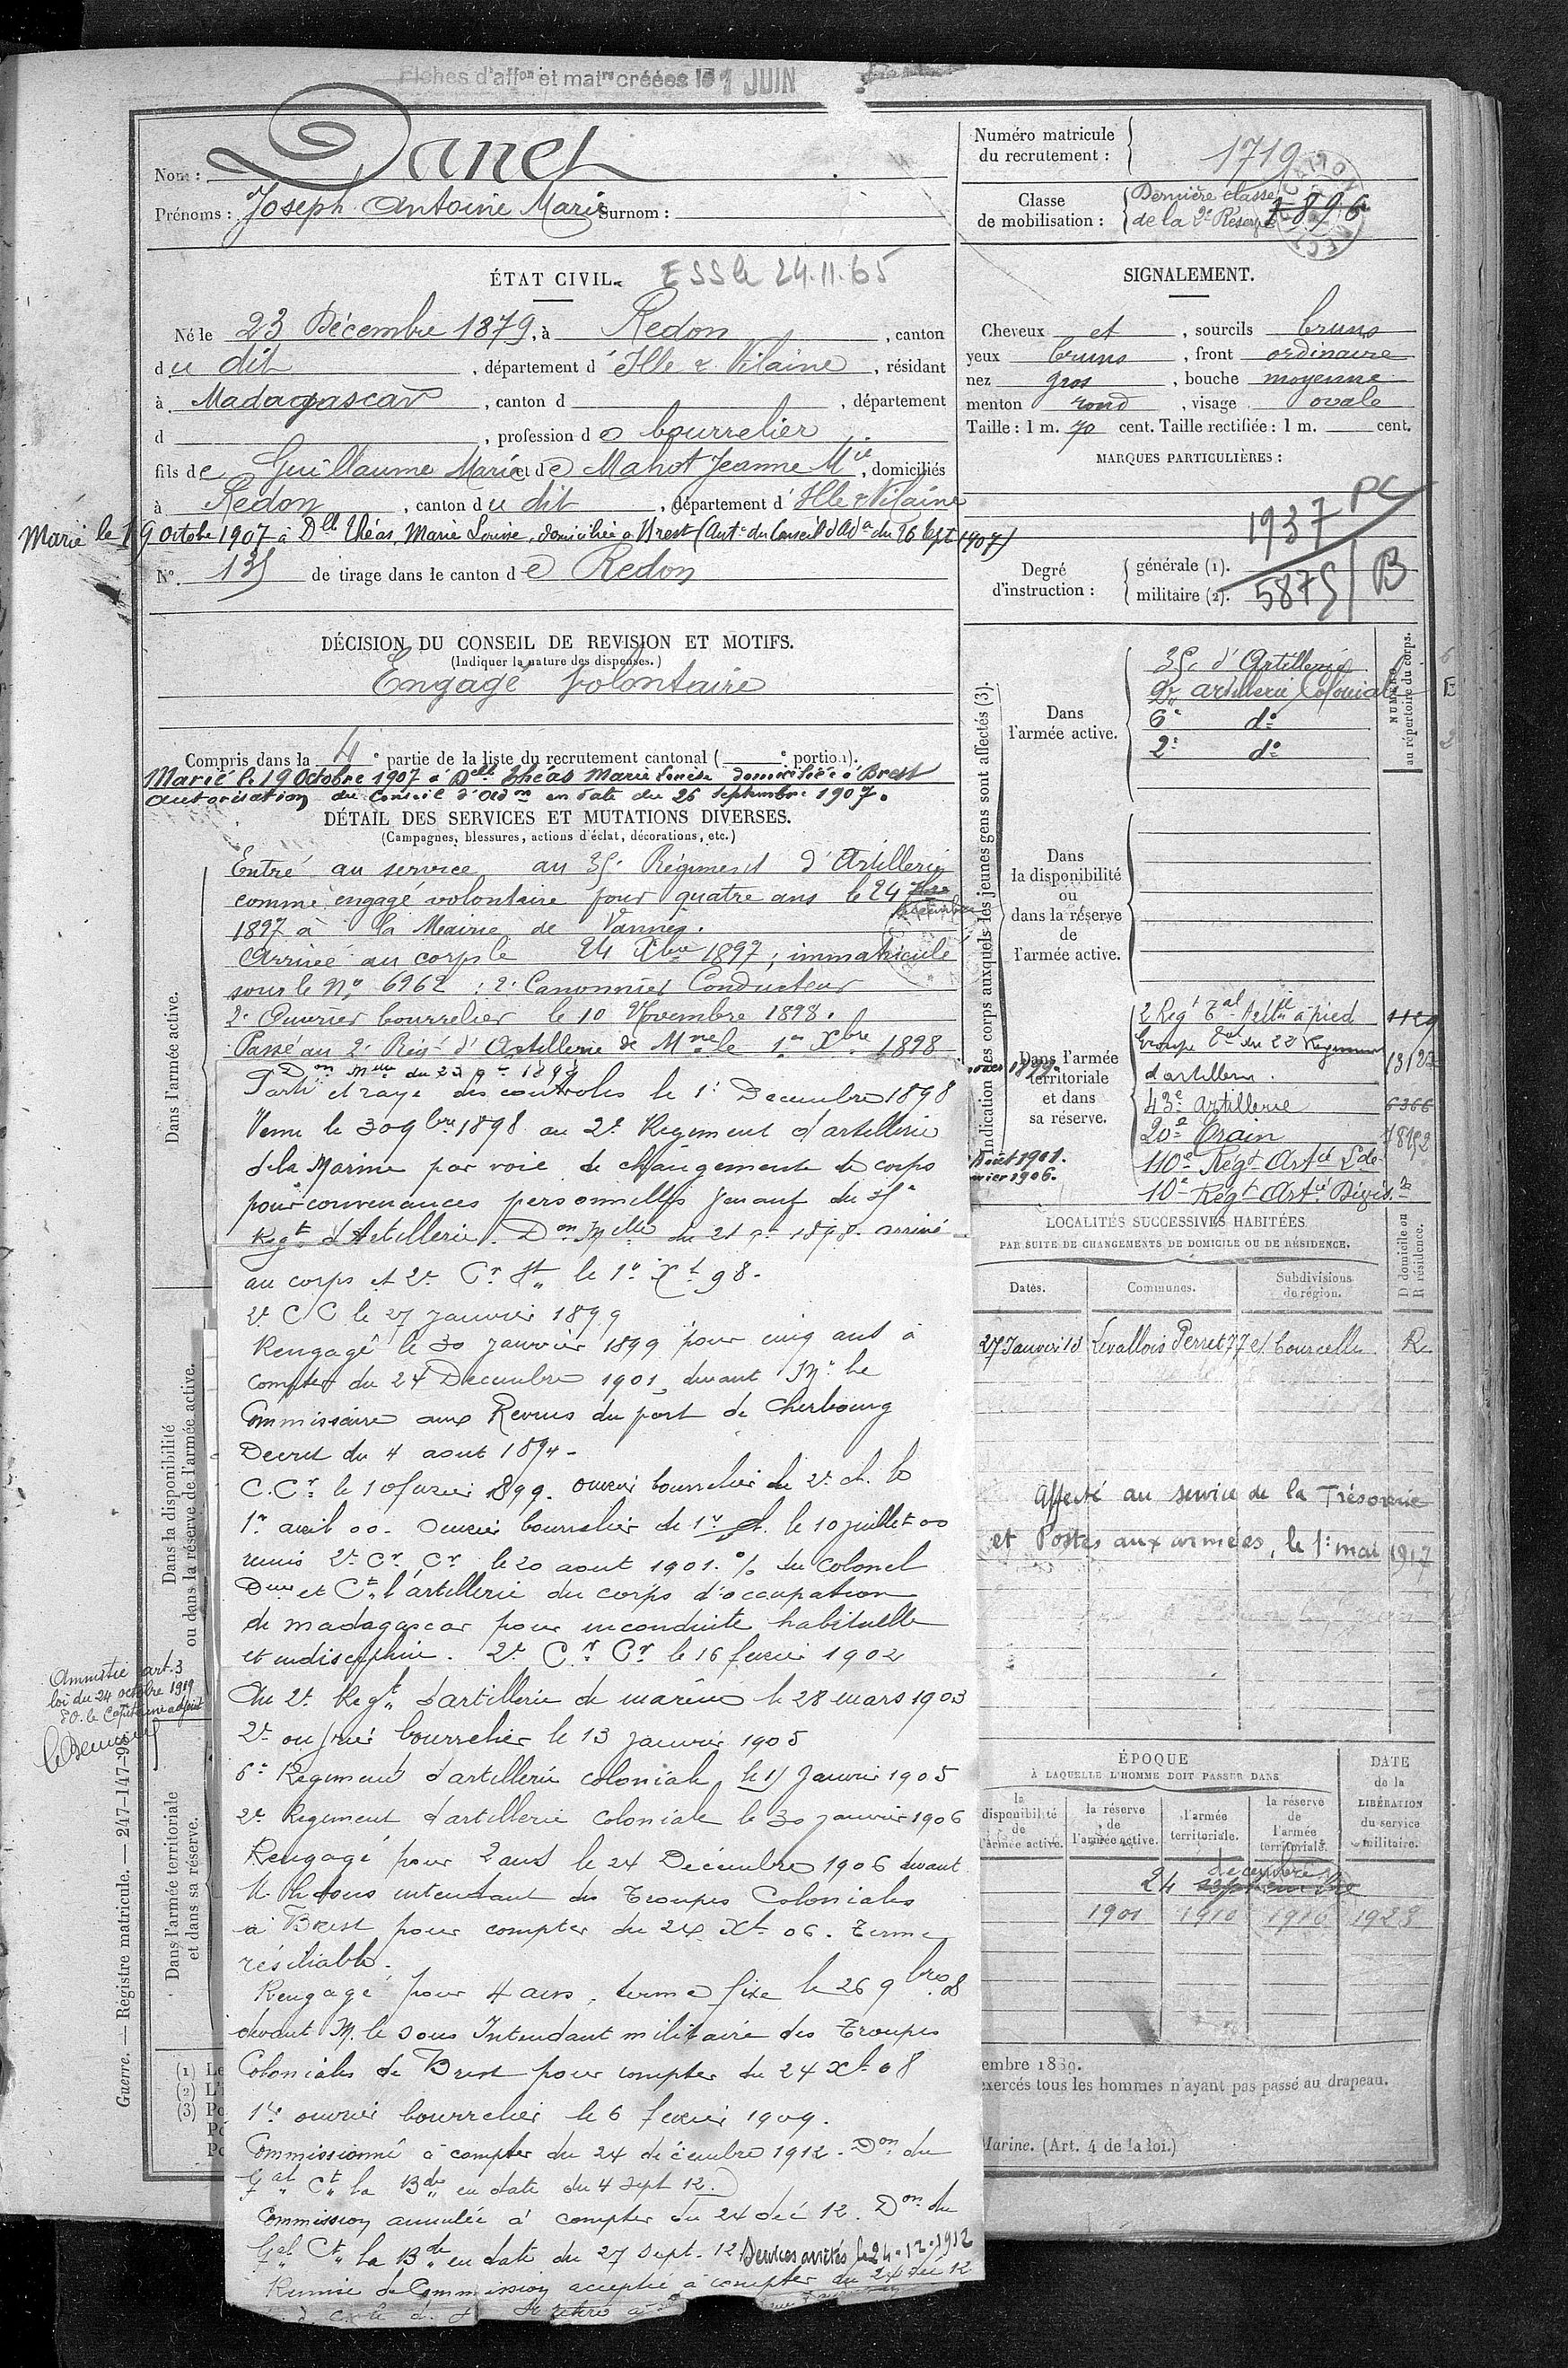 Fiches d'affon et matre créées le 1 JUIN
Nom : Danet
Prénoms : Joseph Antoine Marie Surnom :
Numéro matricule du recrutement : 1719
Classe de mobilisation : Dernière classe de la 2e Réserve 1896
ÉTAT CIVIL. ESS le 24.11.65
Né le 23 Décembre 1879, à Redon, canton
du dit, département d'Ille & Vilaine, résidant
à Madagascar, canton d , département
d , profession de bourrelier
fils de Guillaume Marie et de Mahot Jeanne Mie, domiciliés
à Redon, canton du dit, département d'Ille & Vilaine
Marié le 19 Octobre 1907 à Dlle Théas, Marie Louise, domiciliée à Brest (Auton du Conseil d'Adon du 26 Sept 1907)
No. 135 de tirage dans le canton de Redon
SIGNALEMENT.
Cheveux et , sourcils bruns
yeux bruns , front ordinaire
nez gros , bouche moyenne
menton rond , visage ovale
Taille : 1 m. 70 cent. Taille rectifiée : 1 m. cent.
MARQUES PARTICULIÈRES :
1937 PC
Degré d'instruction : générale (1). militaire (2).
5875 / B
DÉCISION DU CONSEIL DE REVISION ET MOTIFS.
(Indiquer la nature des dispenses.)
Engagé volontaire
Compris dans la 4e partie de la liste du recrutement cantonal ( e portion).
Marié le 19 Octobre 1907 à Delle Théas Marie Louise domiciliée à Brest
autorisation du Conseil d'Adon en date du 26 septembre 1907.
DÉTAIL DES SERVICES ET MUTATIONS DIVERSES.
(Campagnes, blessures, actions d'éclat, décorations, etc.)
Dans l'armée active.
Entré au service au 35e Régiment d'Artillerie
comme engagé volontaire pour quatre ans le 24 décembre
1897 à la Mairie de Vannes.
Arrivé au corps le 24 Xbre 1897 ; immatriculé
sous le No 6962 : 2e Canonnier Conducteur
2e Ouvrier bourrelier le 10 Novembre 1898.
Passé au 2e Régt d'Artillerie de Mne le 1er Xbre 1898
Parti et rayé des contrôles le 1er Decembre 1898
Venu le 30 9bre 1898 au 2e Regiment d'artillerie
de la Marine par voie de changement de corps
pour convenances personnelles venant du 35e
Regt d'Artillerie. Don Mlle du 21 9bre 1898. arrivé
au corps et 2e Cr St le 1er Xt 98.
2e C C le 27 janvier 1899
Rengagé le 30 janvier 1899 pour cinq ans à
compter du 24 Decembre 1901, devant Mr le
Commissaire aux Revues du port de Cherbourg
Decret du 4 aout 1894 -
C. Cr le 10 fevrier 1899. ouvrier bourrelier de 2e cl. le
1er avril 00 - Ouvrier bourrelier de 1re cl. le 10 juillet 00
remis 2e Cr Cr le 20 aout 1901. % du Colonel
Deur et Ct l'artillerie du corps d'occupation
de madagascar pour inconduite habituelle
et indiscipline. 2e Cr Cr le 16 fevrier 1902
Au 2e Regt d'artillerie de marine le 28 mars 1903
2e ouvrier bourrelier le 13 janvier 1905
6e Régiment d'artillerie coloniale le 15 Janvier 1905
2e Regiment d'artillerie coloniale le 30 janvier 1906
Rengagé pour 2 ans le 24 Décembre 1906 devant
M. le sous intendant des Troupes Coloniales
à Brest pour compter du 24 Xt 06. Terme
résiliable.
Rengagé pour 4 ans, terme fixe le 26 9bre 08
devant M. le sous Intendant militaire des Troupes
Coloniales de Brest pour compter du 24 Xt 08
1er ouvrier bourrelier le 6 fevrier 1909.
Commissionné à compter du 24 décembre 1912. Don du
Gal Ct la Bde en date du 4 sept 12.
Commission annulée à compter du 24 déc 12. Don du
Gal Ct la Bde en date du 27 sept. 12. Services arrêtés le 24.12.1912
Remise de Commission acceptée à compter du 24 déc 12
se retire à
Indication des corps auxquels les jeunes gens sont affectés (3).
NUMÉRO au répertoire du corps.
Dans l'armée active.
35e d'Artillerie
2e Artillerie Coloniale
6e do
2e do
Dans la disponibilité ou dans la réserve de l'armée active.
Dans l'armée territoriale et dans sa réserve.
2 Régt à pied
Groupe du 22e Régiment
d'artillerie
43e Artillerie
20e Train
110e Régt Artie Lde
10e Régt Artie Divisre
août 1901.
1906.
LOCALITÉS SUCCESSIVES HABITÉES
PAR SUITE DE CHANGEMENTS DE DOMICILE OU DE RÉSIDENCE.
D domicile ou R résidence.
Dates. Communes. Subdivisions de région.
27 Janvier 13 Levallois Perret 77 r. Courcelles R
Affecté au service de la Trésorerie
et Postes aux armées, le 1er mai 1917
ÉPOQUE
À LAQUELLE L'HOMME DOIT PASSER DANS
la disponibilité de l'armée active.
la réserve de l'armée active.
l'armée territoriale.
la réserve de l'armée territoriale.
DATE de la LIBÉRATION du service militaire.
24 septembre décembre
1901 1910 1916 1923
Dans la disponibilité ou dans la réserve de l'armée active.
Amnistie art. 3
loi du 24 octobre 1919
P.O. le Capitaine adjoint
Dans l'armée territoriale et dans sa réserve.
Guerre. — Régistre matricule. — 247-147-98
(1) Le
(2) L'I
(3) Po
embre 1889.
exercés tous les hommes n'ayant pas passé au drapeau.
Marine. (Art. 4 de la loi.)